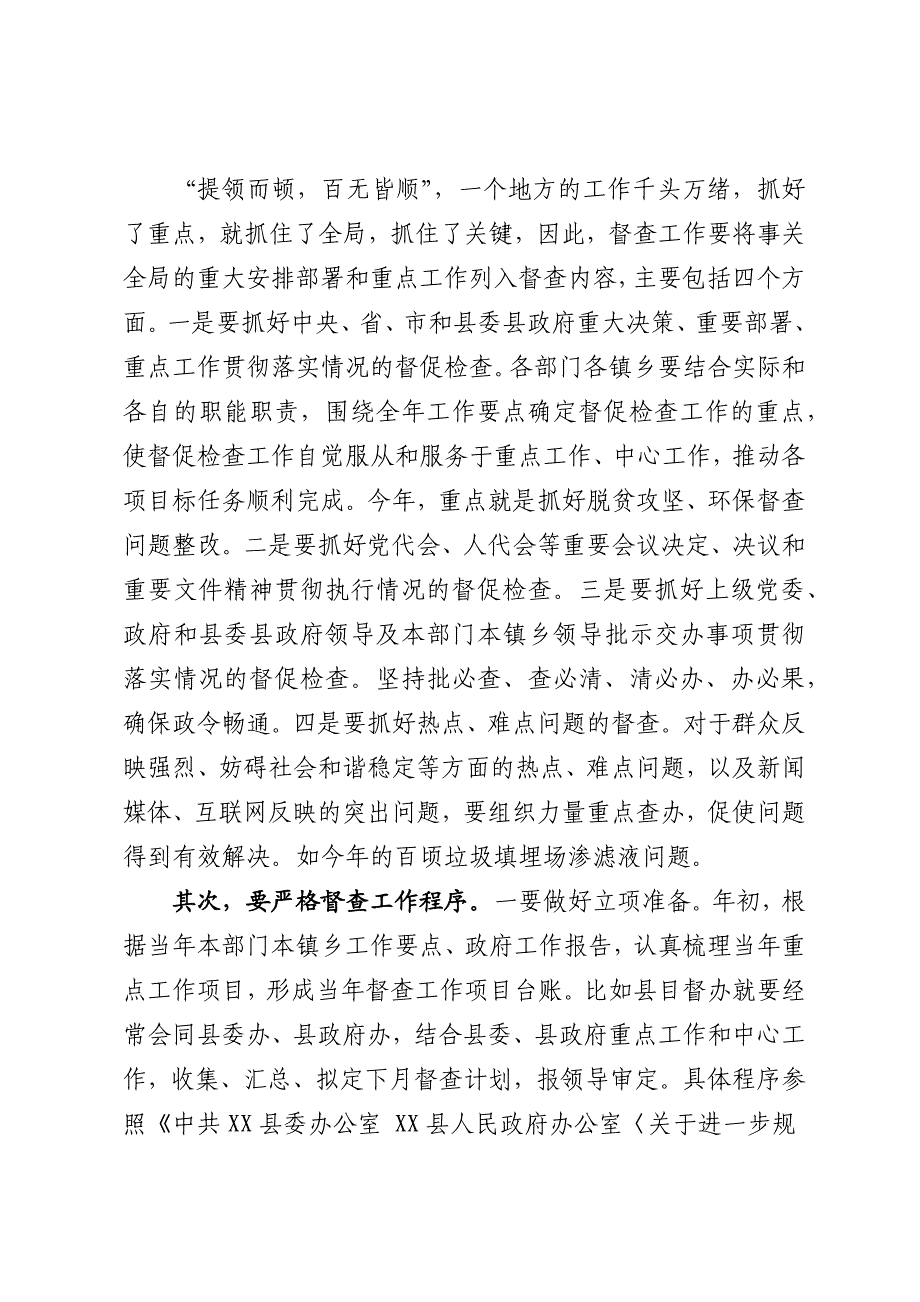 “提领而顿，百无皆顺”，一个地方的工作千头万绪，抓好
了重点，就抓住了全局，抓住了关键，因此，督查工作要将事关
全局的重大安排部署和重点工作列入督查内容，主要包括四个方
面。一是要抓好中央、省、市和县委县政府重大决策、重要部署、
重点工作贯彻落实情况的督促检查。各部门各镇乡要结合实际和
各自的职能职责，围绕全年工作要点确定督促检查工作的重点，
使督促检查工作自觉服从和服务于重点工作、中心工作，推动各
项目标任务顺利完成。今年，重点就是抓好脱贫攻坚、环保督查
问题整改。二是要抓好党代会、人代会等重要会议决定、决议和
重要文件精神贯彻执行情况的督促检查。三是要抓好上级党委、
政府和县委县政府领导及本部门本镇乡领导批示交办事项贯彻
落实情况的督促检查。坚持批必查、查必清、清必办、办必果，
确保政令畅通。四是要抓好热点、难点问题的督查。对于群众反
映强烈、妨碍社会和谐稳定等方面的热点、难点问题，以及新闻
媒体、互联网反映的突出问题，要组织力量重点查办，促使问题
得到有效解决。如今年的百顷垃圾填埋场渗滤液问题。
其次，要严格督查工作程序。一要做好立项准备。年初，根
据当年本部门本镇乡工作要点、政府工作报告，认真梳理当年重
点工作项目，形成当年督查工作项目台账。比如县目督办就要经
常会同县委办、县政府办，结合县委、县政府重点工作和中心工
作，收集、汇总、拟定下月督查计划，报领导审定。具体程序参
照《中共 XX 县委办公室 XX 县人民政府办公室〈关于进一步规